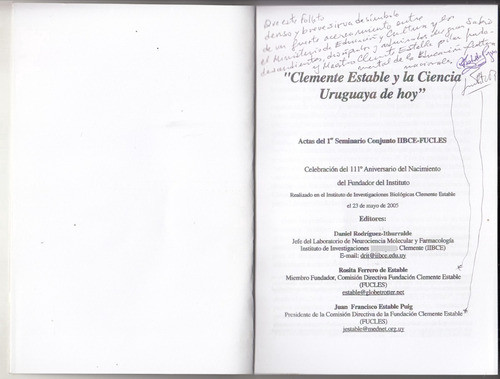 Que este folleto
denso y breve sirva de símbolo
de un fuerte acercamiento entre
el Ministerio de Educación y Cultura y los
descendientes, discípulos y admiradores del gran Sabio
y Maestro Clemente Estable, pilar funda-
mental de la Educación
nacionales
"Clemente Estable y la Ciencia
Uruguaya de hoy"
Actas del 1er Seminario Conjunto IIBCE-FUCLES
Celebración del 111º Aniversario del Nacimiento
del Fundador del Instituto
Realizado en el Instituto de Investigaciones Biológicas Clemente Estable
el 23 de mayo de 2005
Editores:
Daniel Rodríguez-Ithurralde
Jefe del Laboratorio de Neurociencia Molecular y Farmacología
Instituto de Investigaciones Clemente (IIBCE)
E-mail: drit@iibce.edu.uy
Rosita Ferrero de Estable
Miembro Fundador, Comisión Directiva Fundación Clemente Estable
(FUCLES)
estable@globetrotter.net
Juan Francisco Estable Puig
Presidente de la Comisión Directiva de la Fundación Clemente Estable
(FUCLES)
jestable@mednet.org.uy